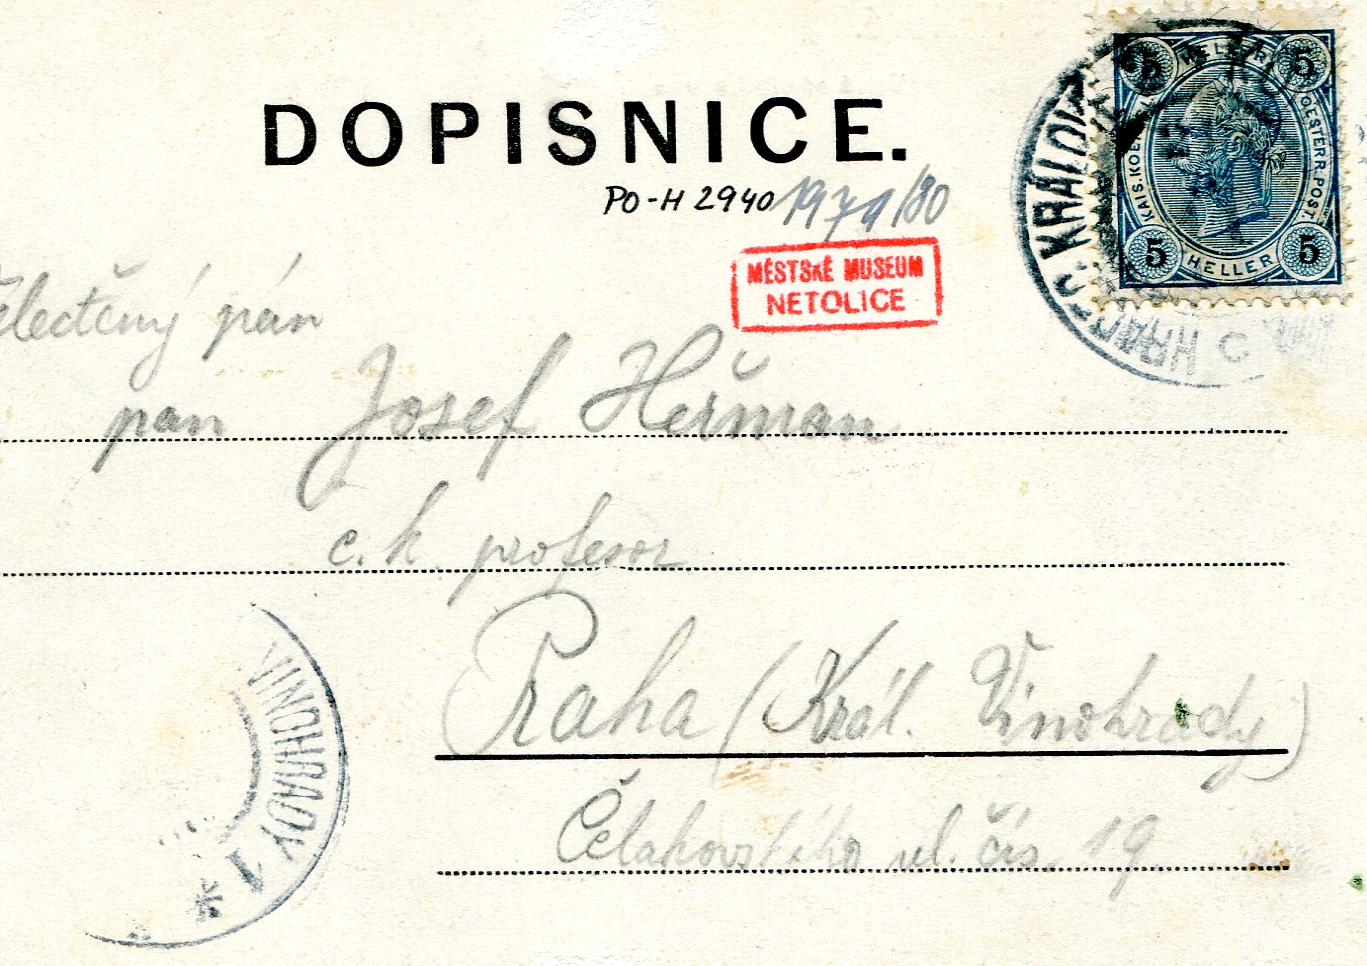 DOPISNICE.
PO-H 2940 1971/80
MĚSTSKÉ MUSEUM
NETOLICE
5 HELLER 5
KAIS. KOE. OESTERR. POST.
5 HELLER 5
C. KRÁLOV
pán
pan Josef Heřman
c. k. profesor
Praha (Král. Vinohrady)
Čelakovského ul. čís. 19.
VINOHRADY
1
*